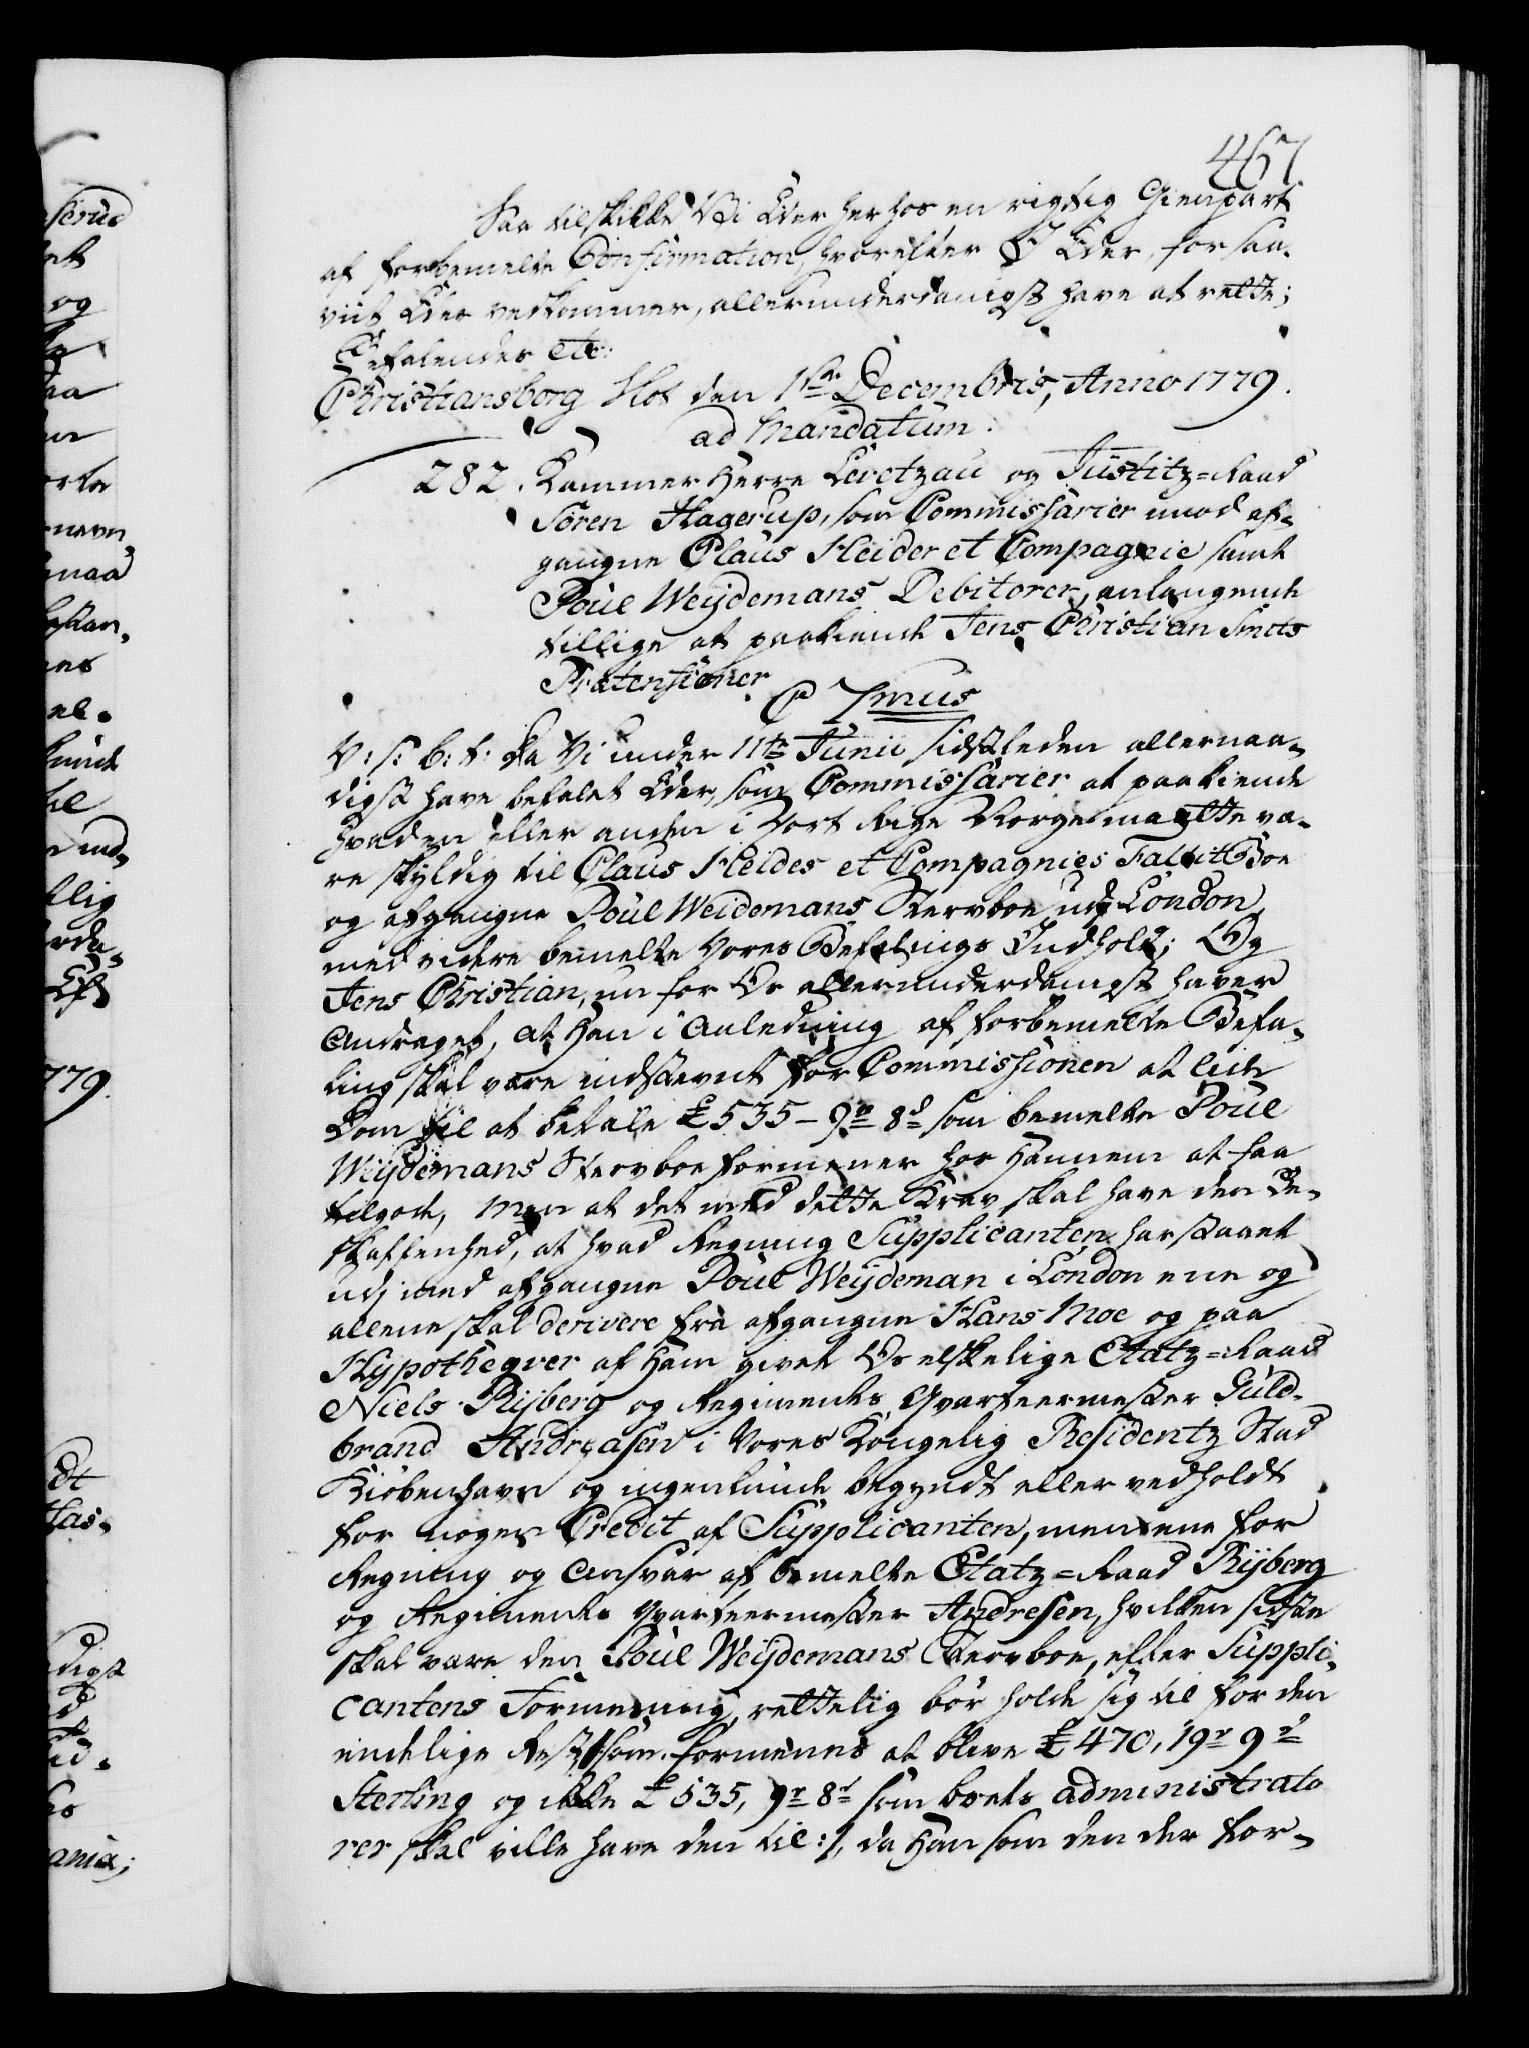 467
Saa tilskikke Vi Eder herhos en rigtig Gienpart
af forbemelte Confirmation, hvorefter I Eder, forsaa-
viit Eder vedkommer, allerunderdanigst have at rette;
Befalendes etc:
Christiansborg Slot den 1ste Decembris, Anno 1779.
ad Mandatum.
282. Kammer Herre Levetzau og Justitz-Raad
Sören Hagerup, som Commissarier mod af-
gangne Claus Heider et Compagnie samt
Poul Weijdemans Debitorer, anlangende
tillige at paakiende Jens Christian Smets
Prætensioner
C 7mus
V: S: B: T: Da Vi under 11te Junii sidstleden allernaa-
digst have befalet Eder, som Commissarier at paakiende
hvad en eller anden i Vort Rige Norge maatte væ-
re skyldig til Claus Heides et Compagnies Fallit Boe
og afgangne Poul Weidemans Sterboe udj London,
med videre bemelte Vores Befalings Indhold; Og
Jens Christian, nu for Os allerunderdanigst haver
Andraget, at Han i Anledning af forbemelte Befa-
ling skal være indstevnt for Commissionen at lide
Dom til at betale £ 535 - 9 s 8 d som bemelte Poul
Weijdemans Sterboe formener hos Hannem at faa
tilgode, Men at det med dette Krav skal have den Be-
skaffenhed, at hvad Regning Supplicanten har staaet
udj med afgangne Poul Weijdeman i London ene og
allene skal derivere fra afgangne Hans Moe og paa
Hypothegver af Ham givet Os elskelige Etatz-Raad
Niels Rijberg og Regiments Qvarteermester Guld-
brand Andreasen i Vores Kongelig Residentz Stad
Kiöbenhavn og ingenlunde begyndt eller vedholdt
for nogen Credit af Supplicanten, men ene for
Regning og Ansvar af bemelte Etatz-Raad Rijberg
og Regiments Qvarteermester Andresen, hvilken sidste
skal være den Poul Weijdemans Sterboe, efter Suppli-
cantens Formening, rettelig bör holde sig til for den
endelige Rest /: som formenes at blive £ 470, 19 s 9 d
Sterling og ikke £ 535, 9 s 8 d som boets administrato
rer skal ville have den til :/, da Han som den der for-